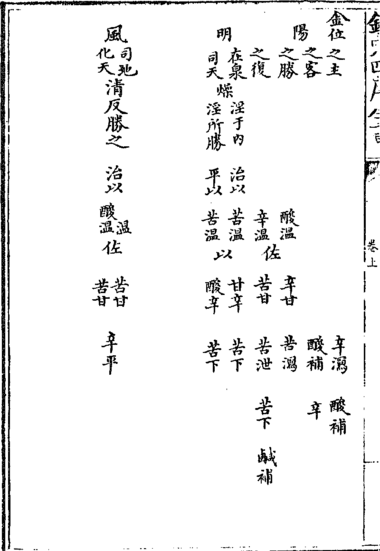 欽定四庫全書
卷上
金位之主 辛瀉 酸補
之客 酸補 辛
陽 之勝 酸溫 辛甘 苦瀉
之復 辛溫 佐 苦甘 苦泄 苦下 鹹補
明 在泉 燥 淫于内 治以 苦溫 以 甘辛 苦下
司天 淫所勝 平以 苦溫 酸辛 苦下
風 司地 化天 清反勝之 治以 酸溫 溫 佐 苦甘 苦甘 辛平